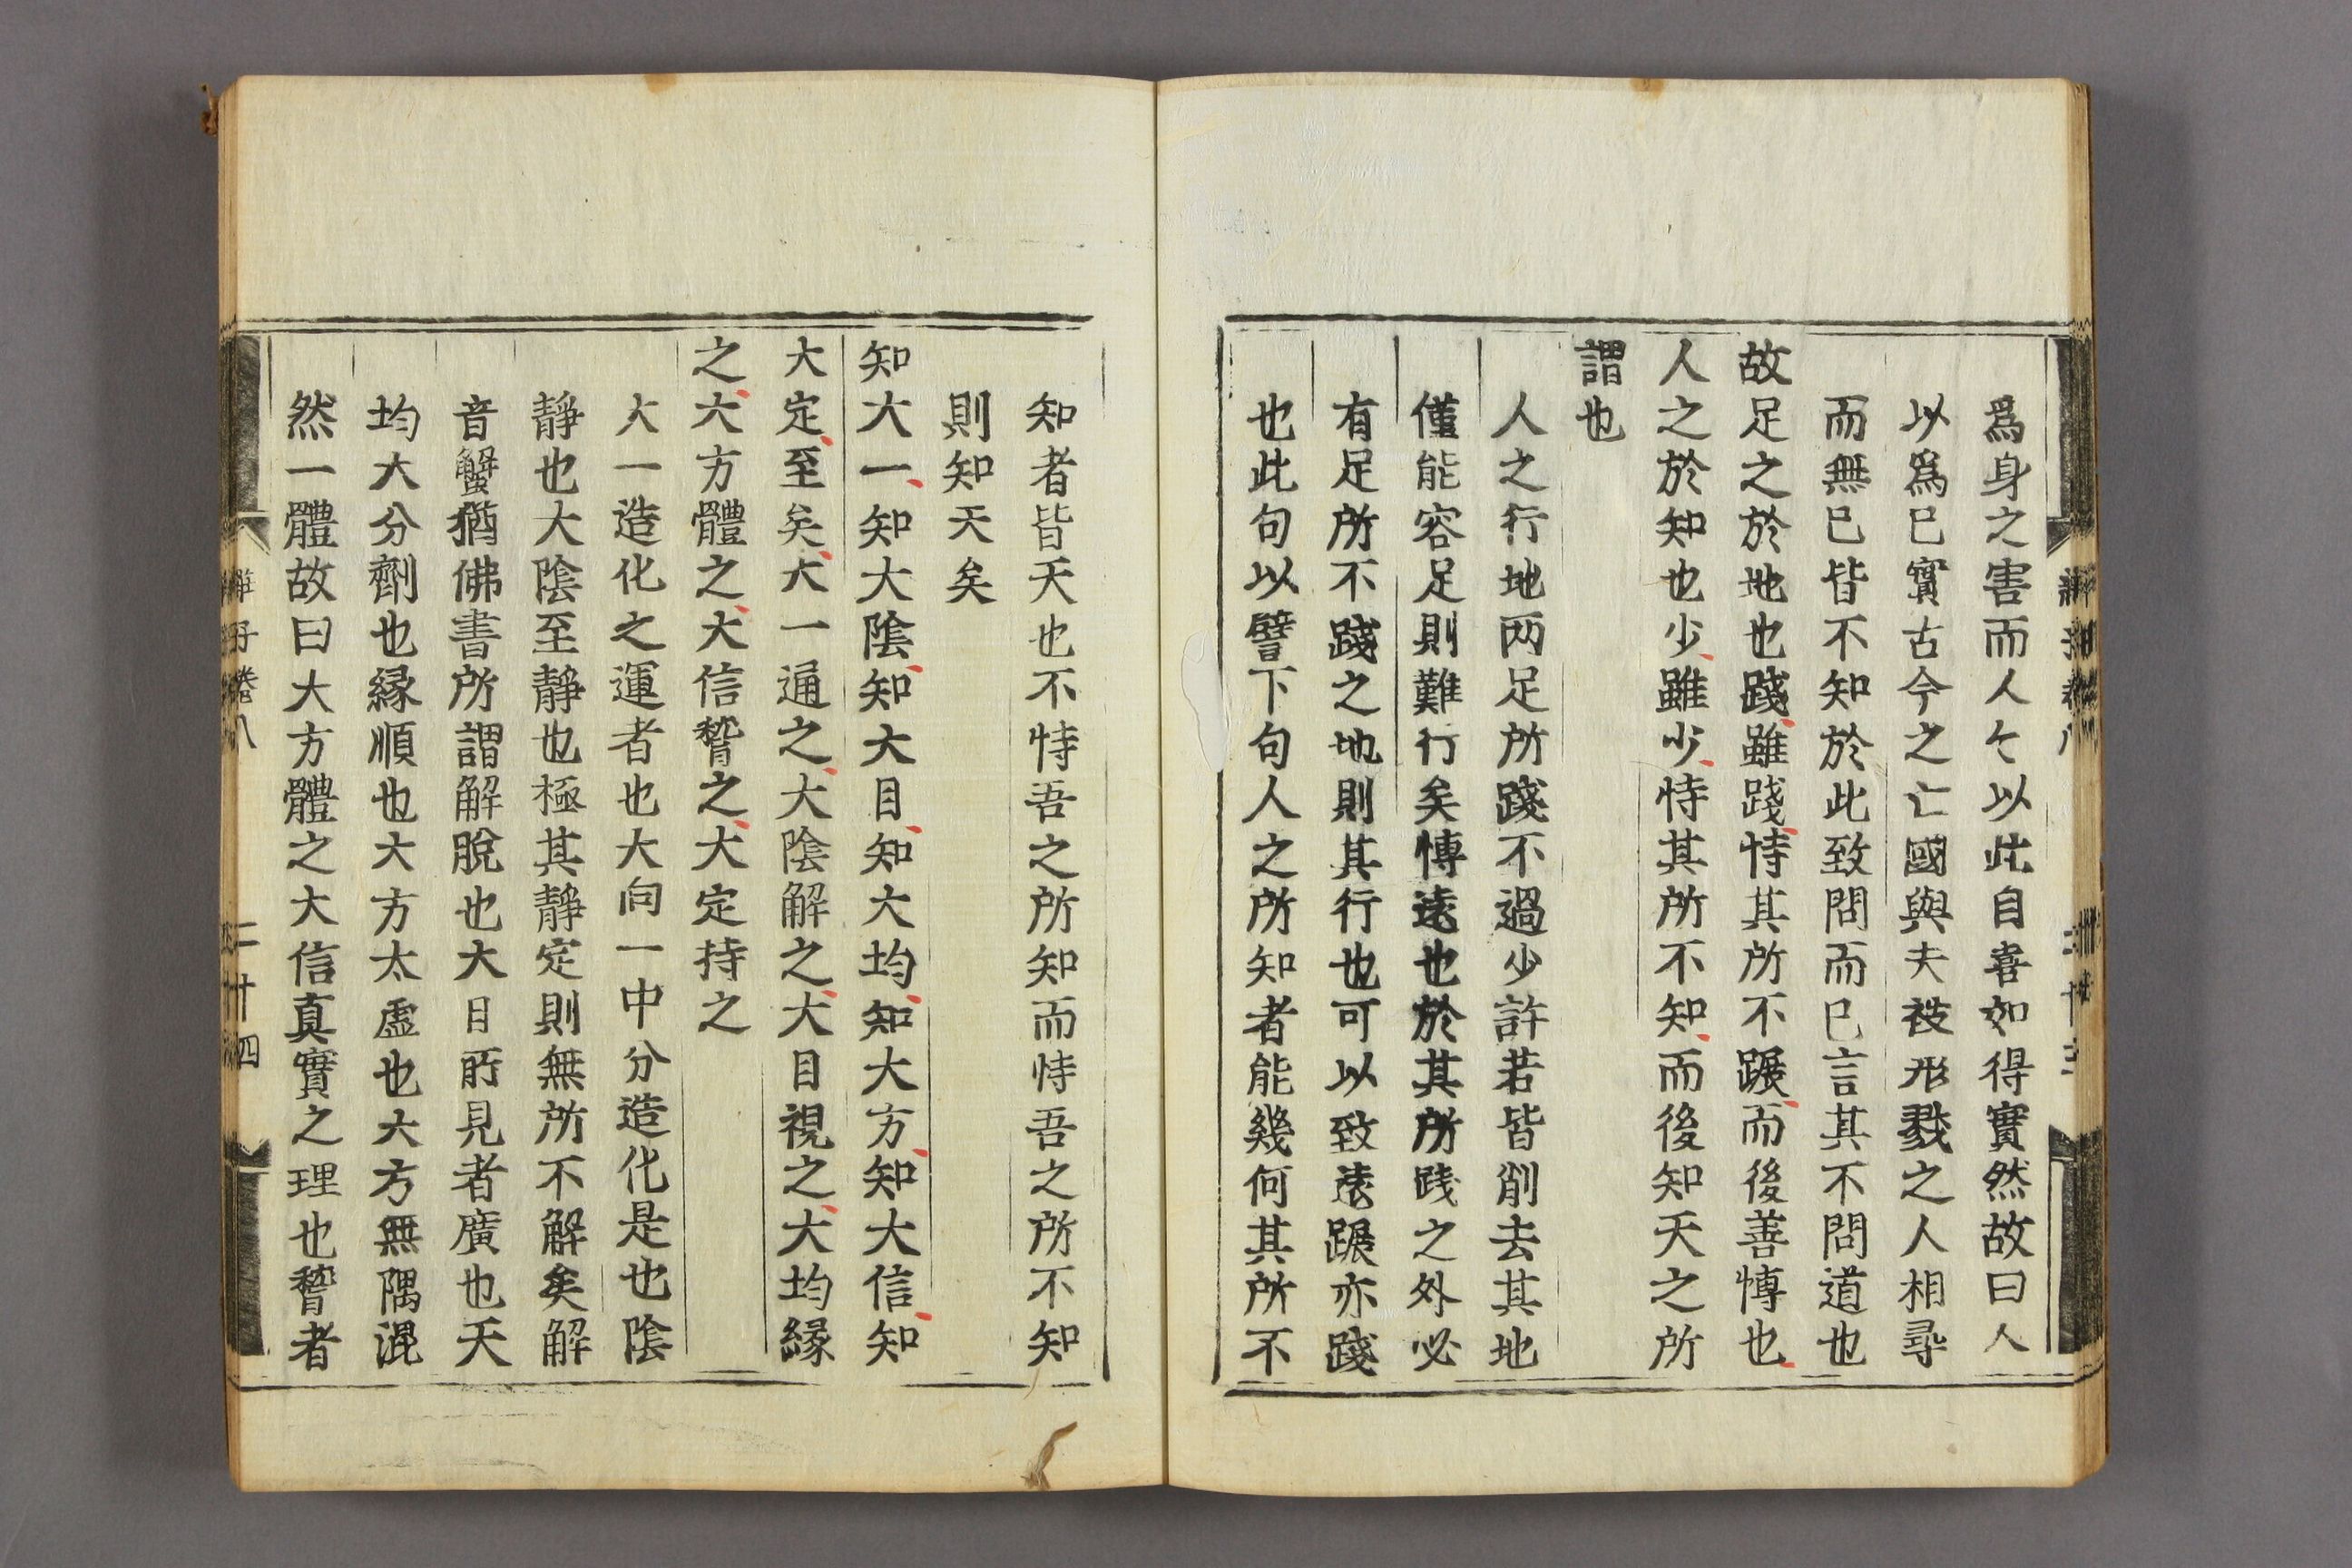 爲身之害而人々以此自喜如得實然故曰人
以爲巳實古今之亡國與夫被形戮之人相尋
而無巳皆不知於此致問而巳言其不問道也
故足之於地也踐雖踐恃其所不蹍而後善愽也
人之於知也少雖少恃其所不知而後知天之所
謂也
人之行地两足所踐不過少許若皆削去其地
僅能容足則難行矣愽遠也於其所践之外必
有足所不踐之地則其行也可以致遠蹍亦踐
也此句以譬下句人之所知者能幾何其所不
知者皆天也不恃吾之所知而恃吾之所不知
則知天矣
知大一知大陰知大目知大均知大方知大信知
大定至矣大一通之大陰解之大目視之大均縁
之大方體之大信稽之大定持之
大一造化之運者也大向一中分造化是也陰
靜也大陰至靜也極其靜定則無所不解矣解
音蟹猶佛書所謂解脫也大目所見者廣也天
均大分劑也縁順也大方太虛也大方無隅混
然一體故曰大方體之大信真實之理也稽者
子卷八
二十四